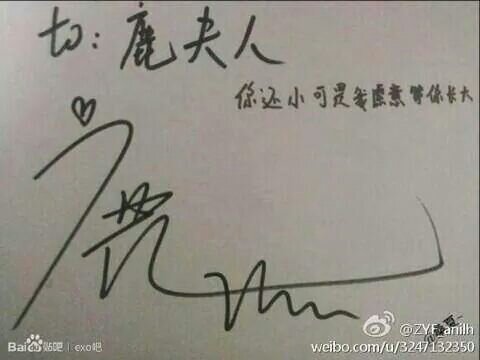 to: 鹿夫人
你还小可是我愿意等你长大
鹿
Bai 贴吧 | exo吧
@ZYF_anilh
weibo.com/u/3247132350